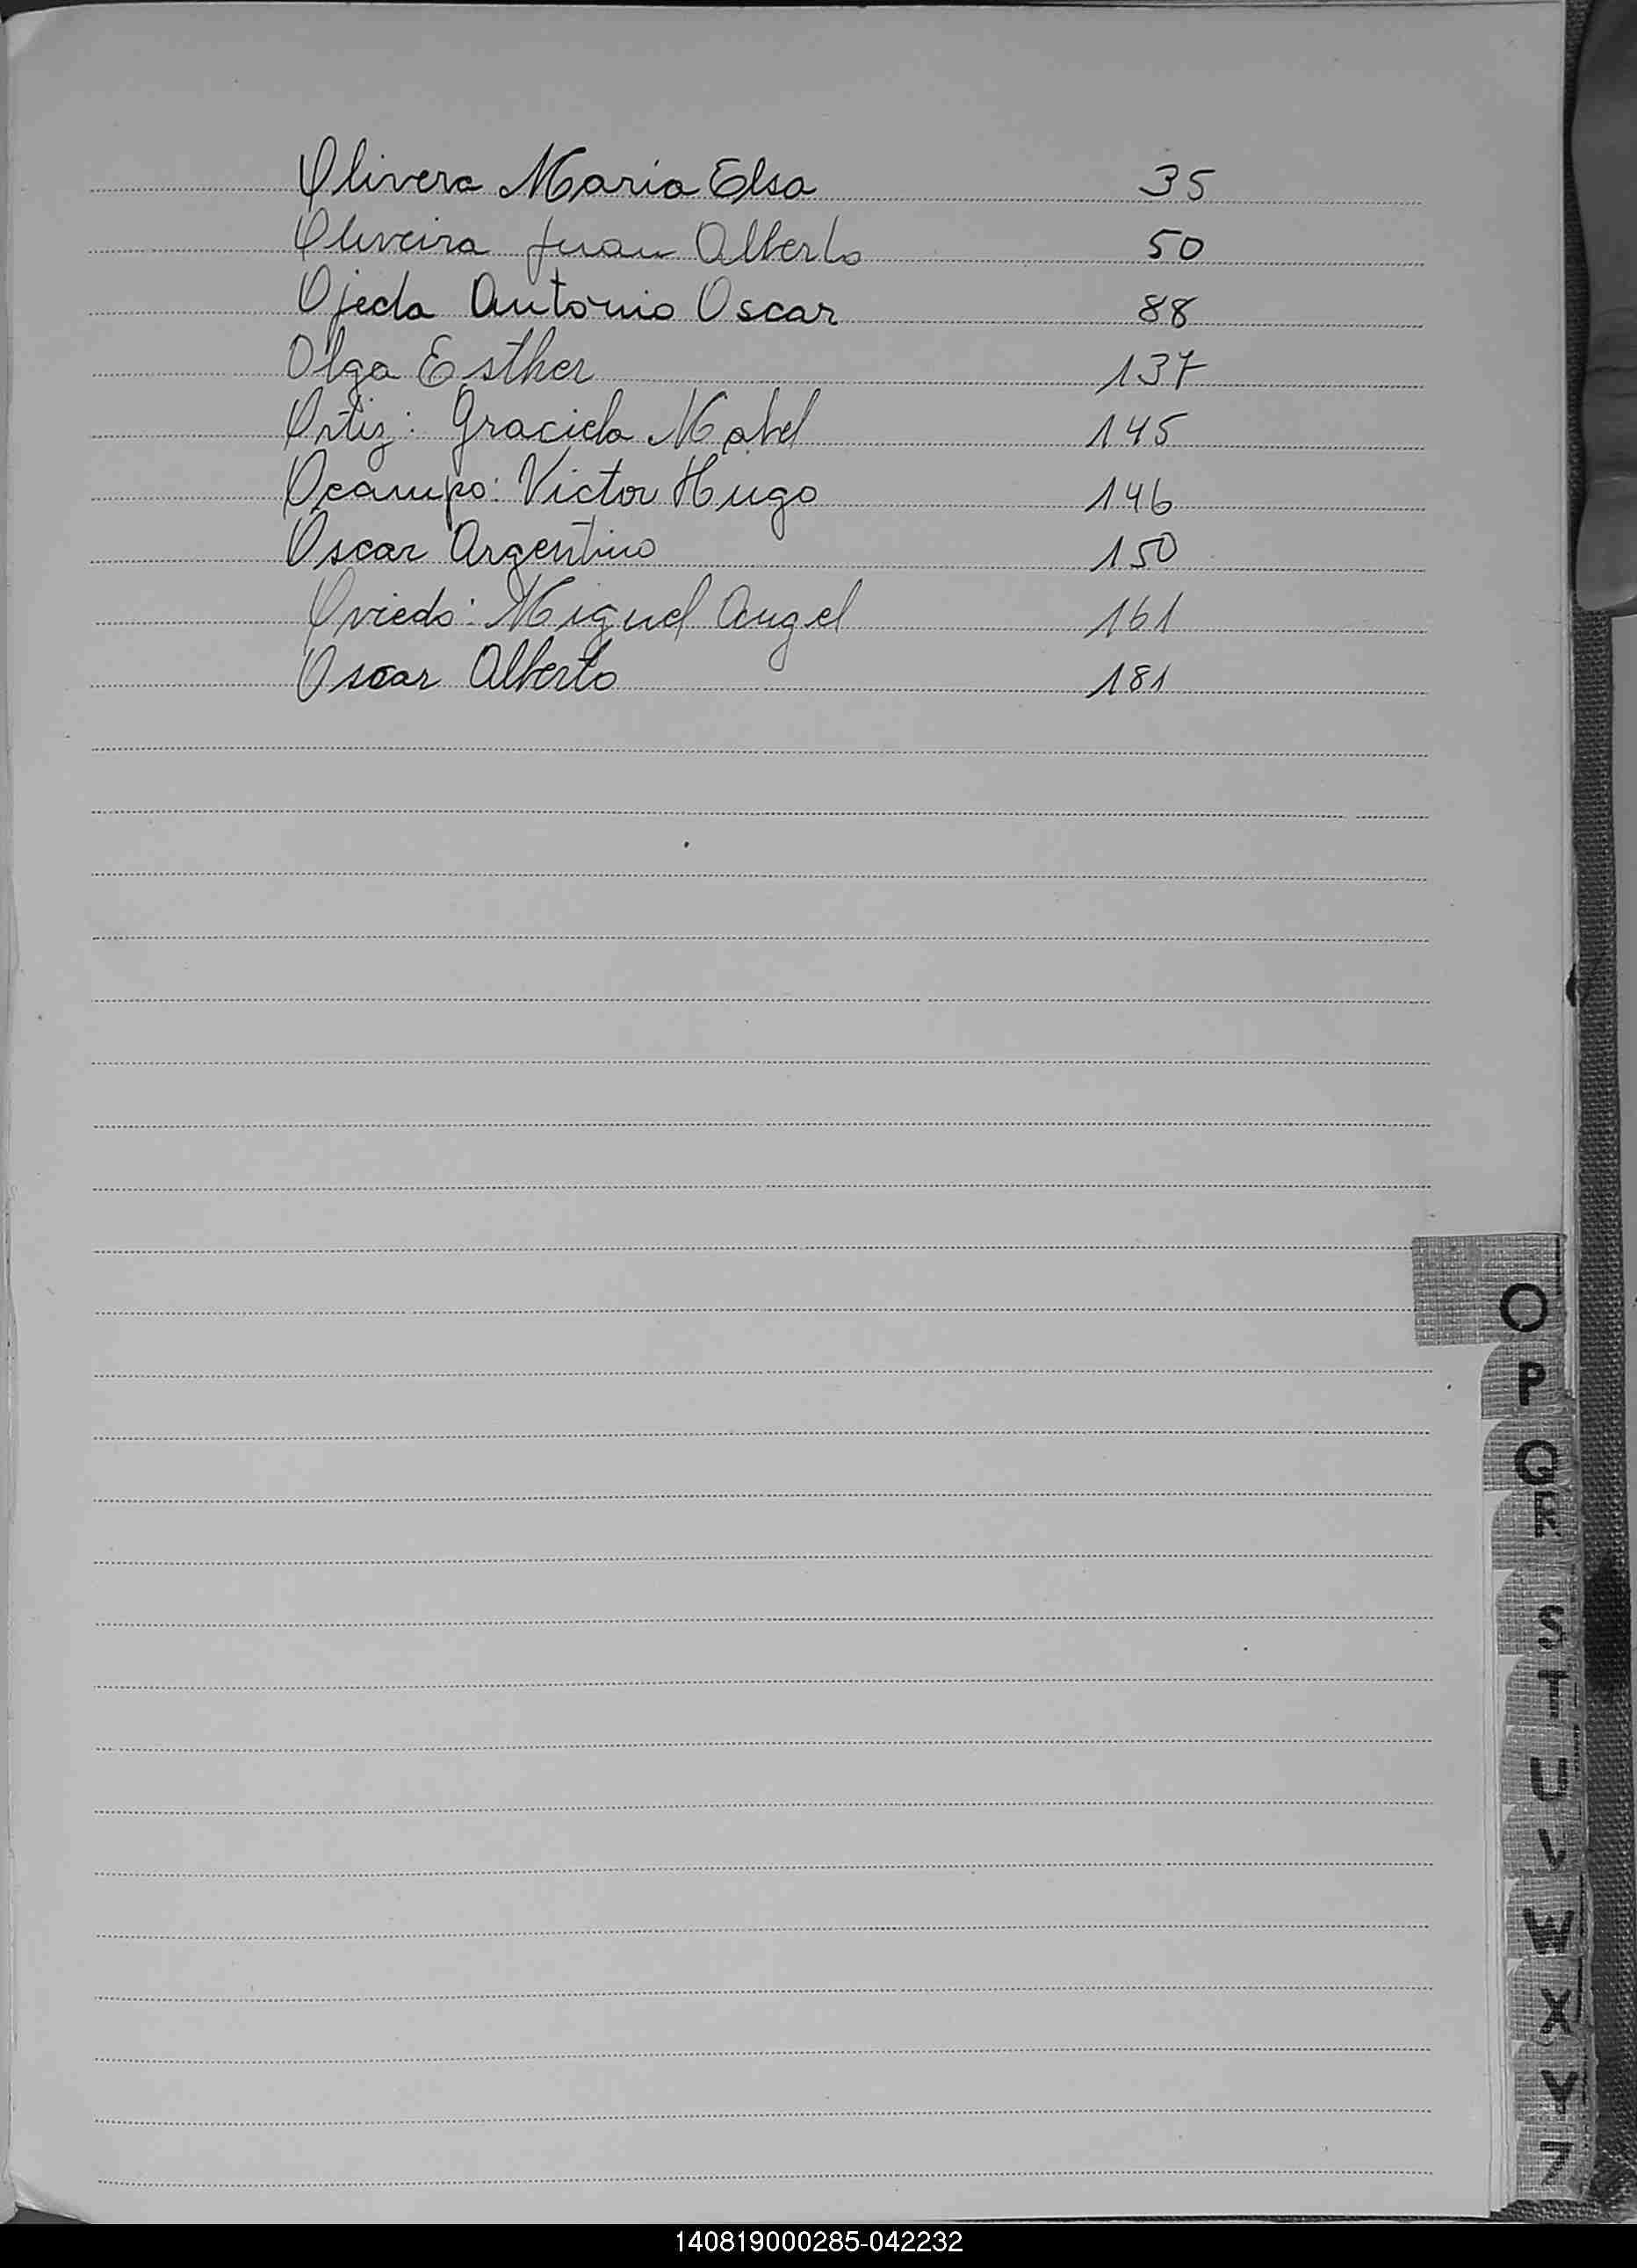 Olivera Maria Elsa 35
Oliveira Juan Alberto 50
Ojeda Antonio Oscar 88
Olga Esther 137
Ortiz: Graciela Mabel 145
Ocampo: Victor Hugo 146
Oscar Argentino 150
Oviedo: Miguel Angel 161
Oscar Alberto 181
O
P
Q
R
S
T
U
V
W
X
Y
Z
140819000285-042232